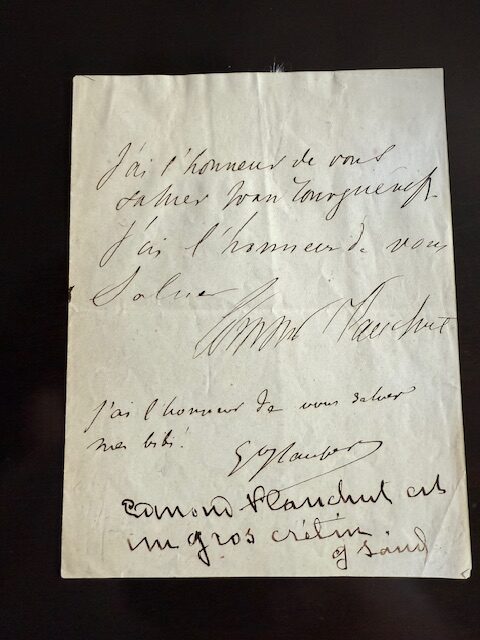 J'ai l'honneur de vous
saluer Ivan Tourguéneff
J'ai l'honneur de vous
Saluer
Edmond Plauchut
J'ai l'honneur de vous saluer
mes bibi!
G Flaubert
Edmond Plauchut est
un gros crétin
g sand